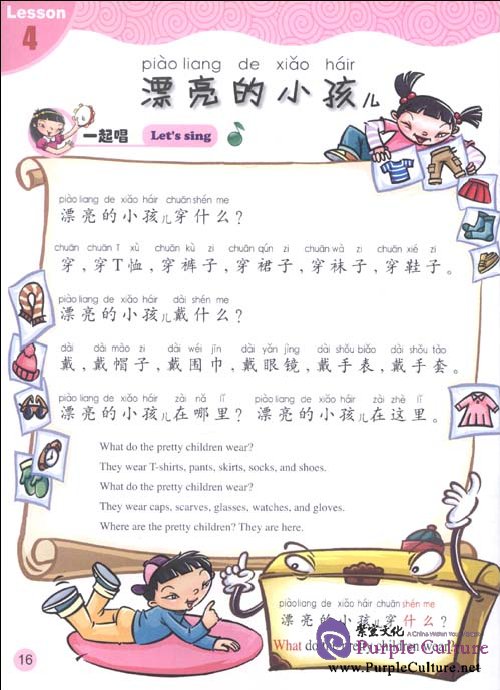 Lesson
4
piào liang de xiǎo háir
漂亮的小孩儿
一起唱 Let's sing
piào liang de xiǎo háir chuān shén me
漂亮的小孩儿穿什么？
chuān chuān T xù chuān kù zi chuān qún zi chuān wà zi chuān xié zi
穿，穿T恤，穿裤子，穿裙子，穿袜子，穿鞋子。
piào liang de xiǎo háir dài shén me
漂亮的小孩儿戴什么？
dài dài mào zi dài wéi jīn dài yǎn jìng dài shǒu biǎo dài shǒu tào
戴，戴帽子，戴围巾，戴眼镜，戴手表，戴手套。
piào liang de xiǎo háir zài nǎ lǐ piào liang de xiǎo háir zài zhè lǐ
漂亮的小孩儿在哪里？ 漂亮的小孩儿在这里。
What do the pretty children wear?
They wear T-shirts, pants, skirts, socks, and shoes.
What do the pretty children wear?
They wear caps, scarves, glasses, watches, and gloves.
Where are the pretty children? They are here.
piào liang de xiǎo háir chuān shén me
漂亮的小孩儿穿什么？
What do the pretty children wear?
紫宸文化
Purple Culture
www.PurpleCulture.net
16